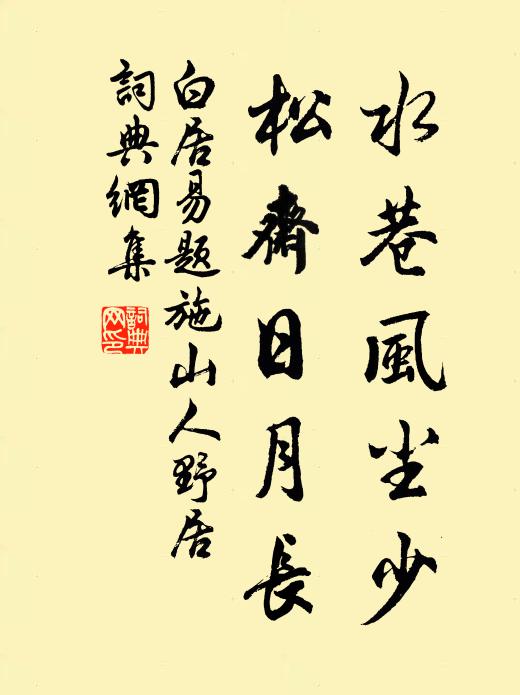 水巷風尘少
松齋日月長
白居易題施山人野居
詞典網集
詞典網印